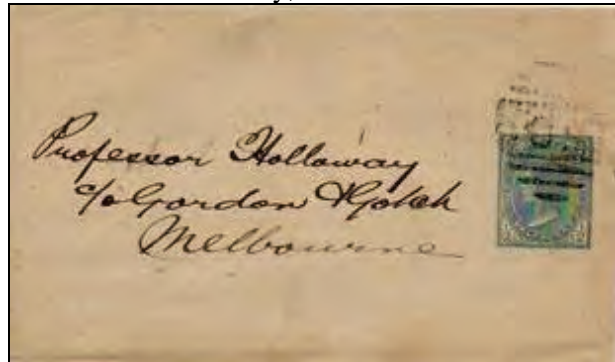 Professor Holloway
c/o Gordon & Gotch
Melbourne